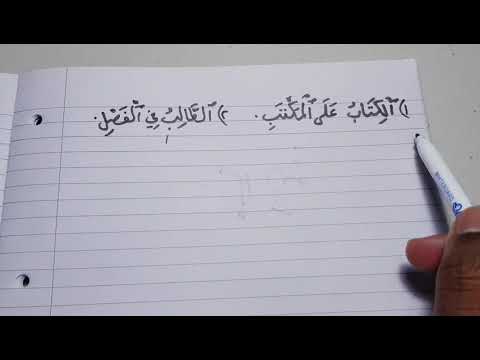 ١) ٱلْكِتَابُ عَلَى ٱلْمَكْتَبِ. ٢) ٱلطَّالِبُ فِي ٱلْفَصْلِ.